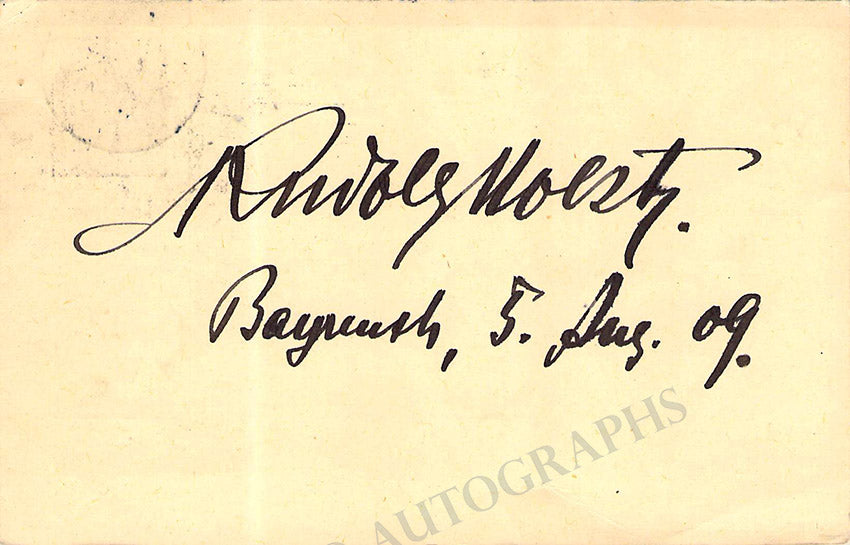 Rudolf Moest.
Bayreuth, 5. Aug. 09.
AUTOGRAPHS